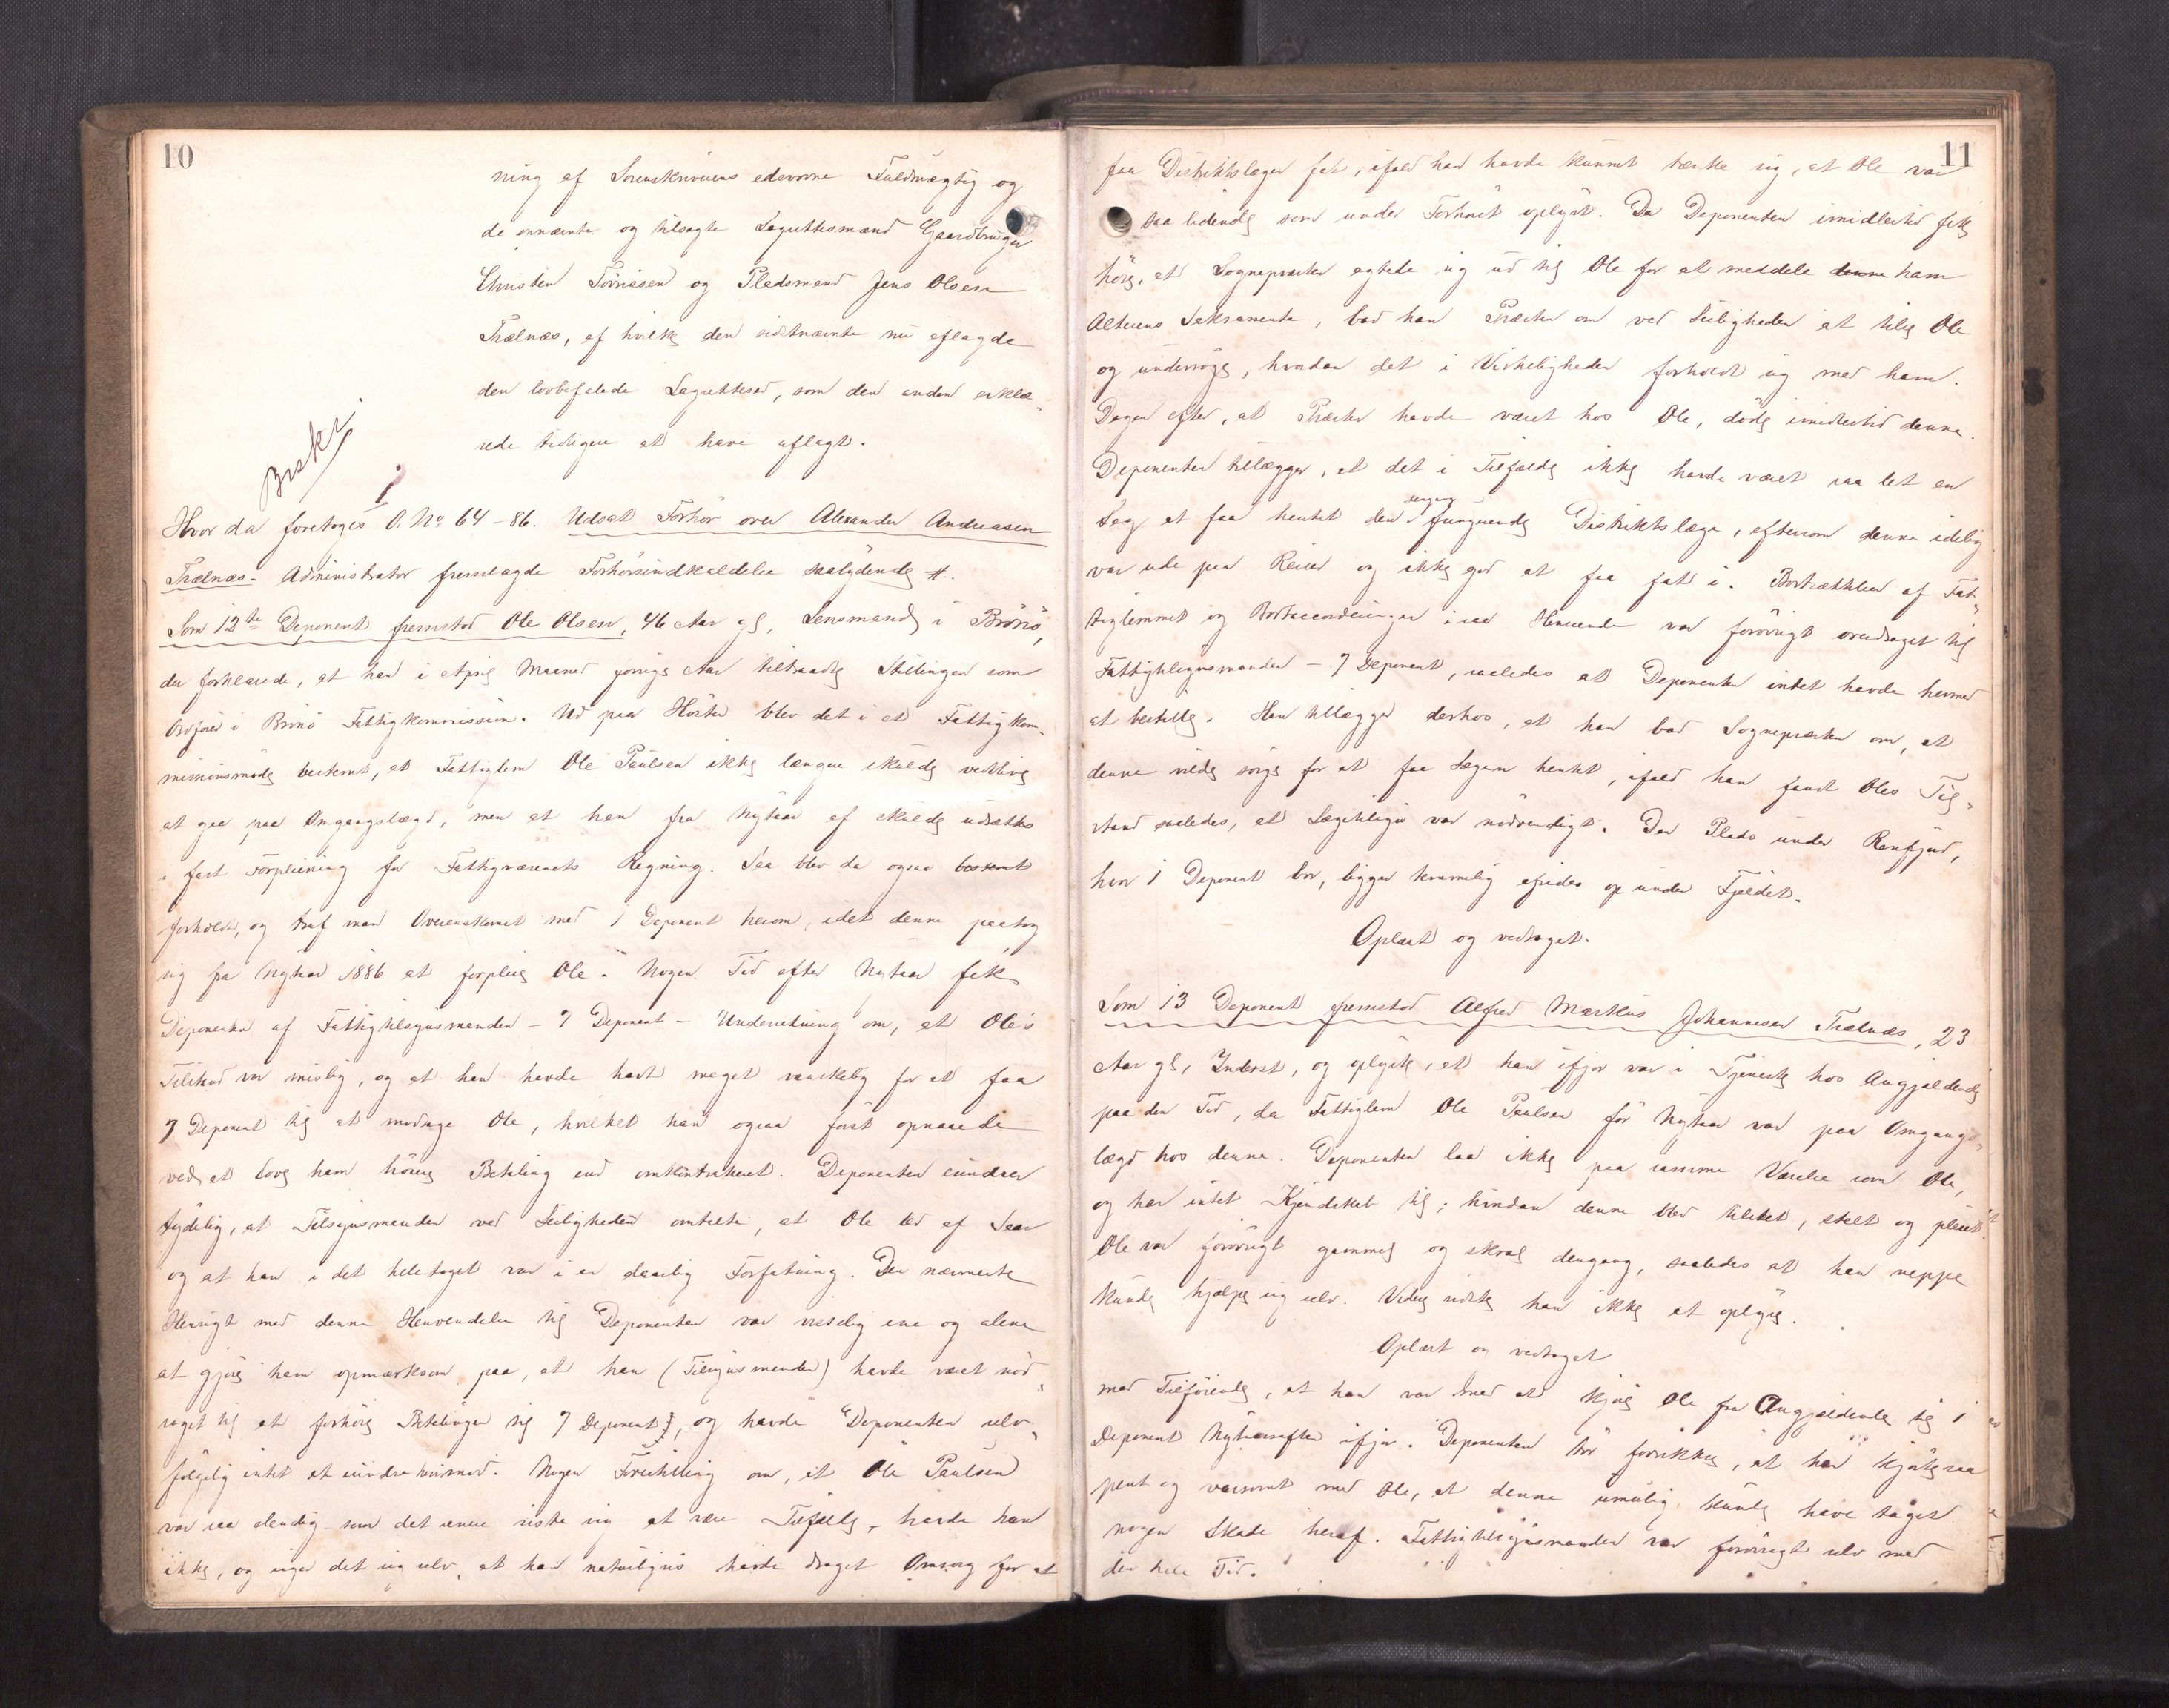 10
ning af Sorenskriverens edsvorne Fuldmægtig og
de opnævnte og tilsagte Lagrettesmænd Gaardbruger
Christen Tørrissen og Pladsmand Jens Olsen
Trælnæs, af hvilke den sidstnævnte nu aflagde
den lovbefalede Lagrettesed, som den anden erklæ-
rede tidligere at have aflagt.
Beskr.
1
Hvor da foretoges O. No 64-86. Udsat Forhør over Alexander Andreasen
Trælnæs. Administrator fremlagde Forhørsindkaldelse saalydende #.
Som 12te Deponent fremstod Ole Olsen, 46 Aar gl, Lensmand i Brønø,
der forklarede, at han i April Maaned forrige Aar tiltraadte Stillingen som
Ordfører i Brønø Fattigkommission. Ud paa Høsten blev det i et Fattigkom-
missionsmøde bestemt, at Fattiglem Ole Paulsen ikke længere skulde vedblive
at gaa paa Omgangslægd, men at han fra Nytaar af skulde udsættes
i fast Forpleining for Fattigvæsenets Regning. Saa blev da ogsaa bestemt
forholdt, og traf man Overenskomst med 1 Deponent herom, idet denne paatog
sig fra Nytaar 1886 at forpleie Ole. Nogen Tid efter Nytaar fik
Deponenten af Fattigtilsynsmanden - 7 Deponent - Underretning om, at Ole's
Tilstand var mislig, og at han havde havt meget vanskelig for at faa
7 Deponent til at modtage Ole, hvilket han ogsaa først opnaaede
ved at love ham høiere Betaling end omkontraheret. Deponenten erindrer
tydelig, at Tilsynsmanden ved Leiligheden omtalte, at Ole led af Saar
og at han i det hele taget var i en daarlig Forfatning. Den nærmeste
Hensigt med denne Henvendelse til Deponenten var visselig ene og alene
at gjøre ham opmærksom paa, at han (Tilsynsmanden) havde været nød-
saget til at forhøie Betalingen til 7 Deponent, og havde Deponenten selv-
følgelig intet at erindre herimod. Nogen Forestilling om, at Ole Paulsen
var saa elendig som det senere viste sig at være Tilfælde, havde han
ikke, og siger det sig selv, at han naturligvis havde draget Omsorg for at
11
faa Distriktslægen fat, ifald han havde kunnet tænke sig, at Ole var
saa lidende som under Forhøret oplyst. Da Deponenten imidlertid fik
høre, at Sognepresten agtede sig ud til Ole for at meddele denne ham
Alterens Sakramente, bad han Præsten om ved Leiligheden at tilse Ole
og undersøge, hvordan det i Virkeligheden forholdt sig med ham.
Dagen efter, at Præsten havde været hos Ole, døde imidlertid denne.
Deponenten tilægger, at det i Tilfælde ikke havde været saa let en
Sag at faa hentet den dengang fungerende Distriktslæge, eftersom denne idelig
var ude paa Reiser og ikke god at faa fat i. Bortsættelsen af Fat-
tiglemmet og Bortaccorderingen i saa Henseende var forøvrigt overdraget til
Fattigtilsynsmanden - 7 Deponent, saaledes at Deponenten intet havde hermed
at bestille. Han tillægger derhos, at han bad Sognepresten om, at
denne vilde sørge for at faa Lægen hentet, ifald han fandt Oles Til-
stand saaledes, at Lægetilsyn var nødvendigt. Den Plads under
hvor 1 Deponent bor, ligger temmelig afsides op under Fjeldet.
Oplæst og vedtaget.
Som 13 Deponent fremstod Alfred Markus Johannesen Trælnæs, 23
Aar gl, Inderst, og oplyste, at han ifjor var i Tjeneste hos Angjældende
paa den Tid, da Fattiglem Ole Paulsen før Nytaar var paa Omgangs-
lægd hos denne. Deponenten laa ikke paa samme Værelse som Ole,
og har intet Kjendskab til, hvordan denne blev tilseet, stelt og pleiet.
Ole var forøvrigt gammel og skral dengang, saaledes at han neppe
kunde hjælpe sig selv. Videre vidste han ikke at oplyse.
Oplæst og vedtaget
med Tilføiende, at han var med at kjøre Ole fra Angjældende til 1
Deponent Nytaarsaften ifjor. Deponenten tør forsikre, at han kjørte saa
pent og varsomt med Ole, at denne umulig kunde have taget
nogen Skade heraf. Fattigtilsynsmanden var forøvrigt selv med
den hele Tid.